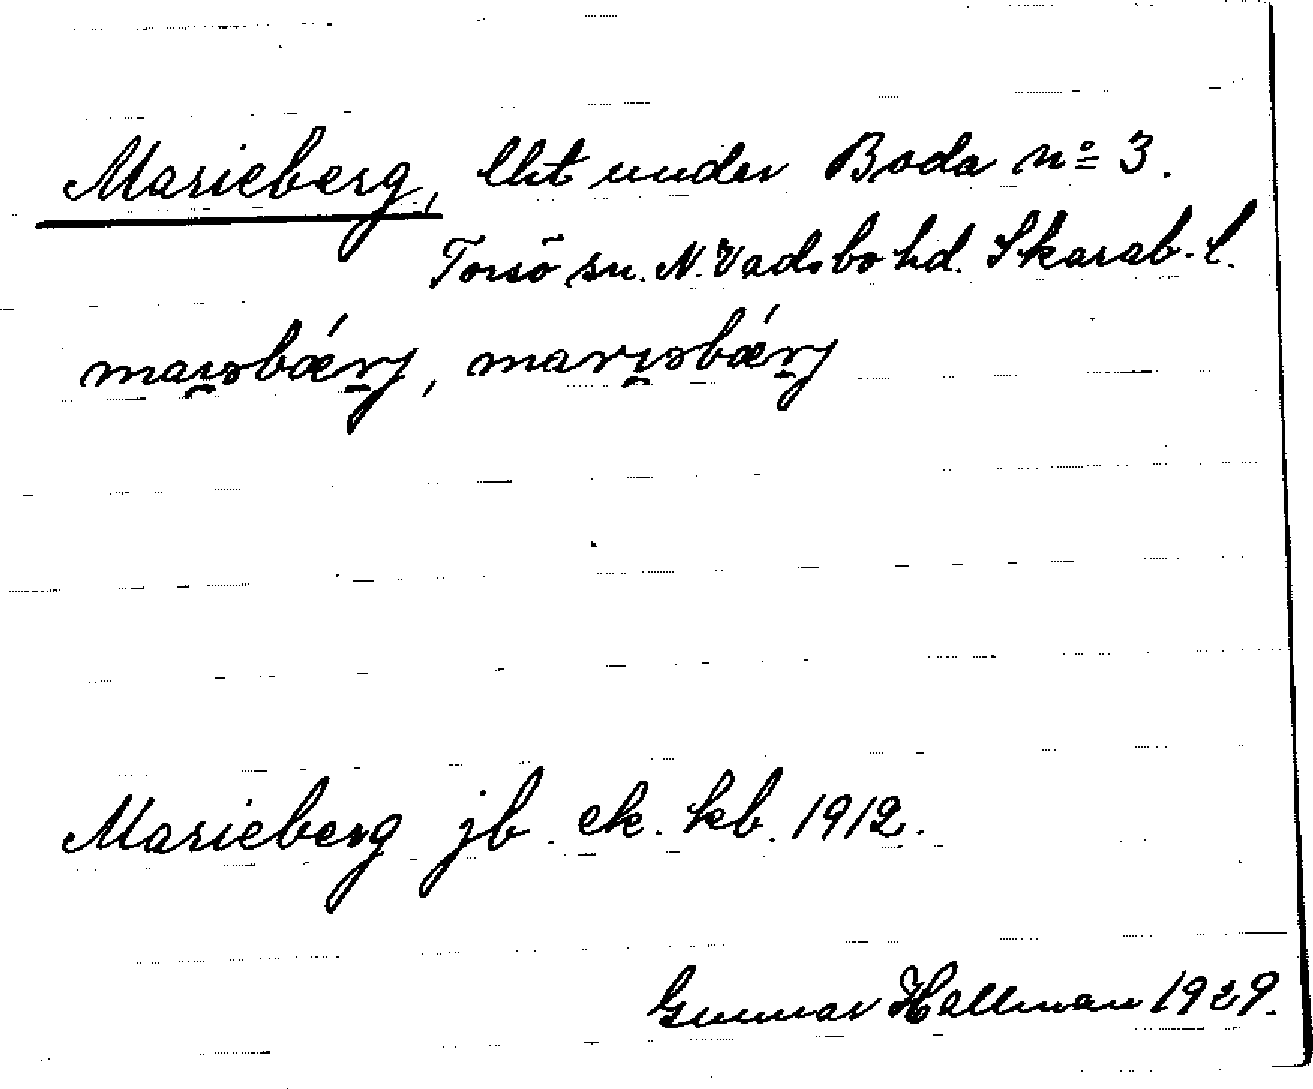 Marieberg, lht under Boda nº 3.
Torsö sn. N. Vadsbo hd. Skarab. l.
Marieberg jb. ek. kb. 1912.
Gunnar Hallman 1929.